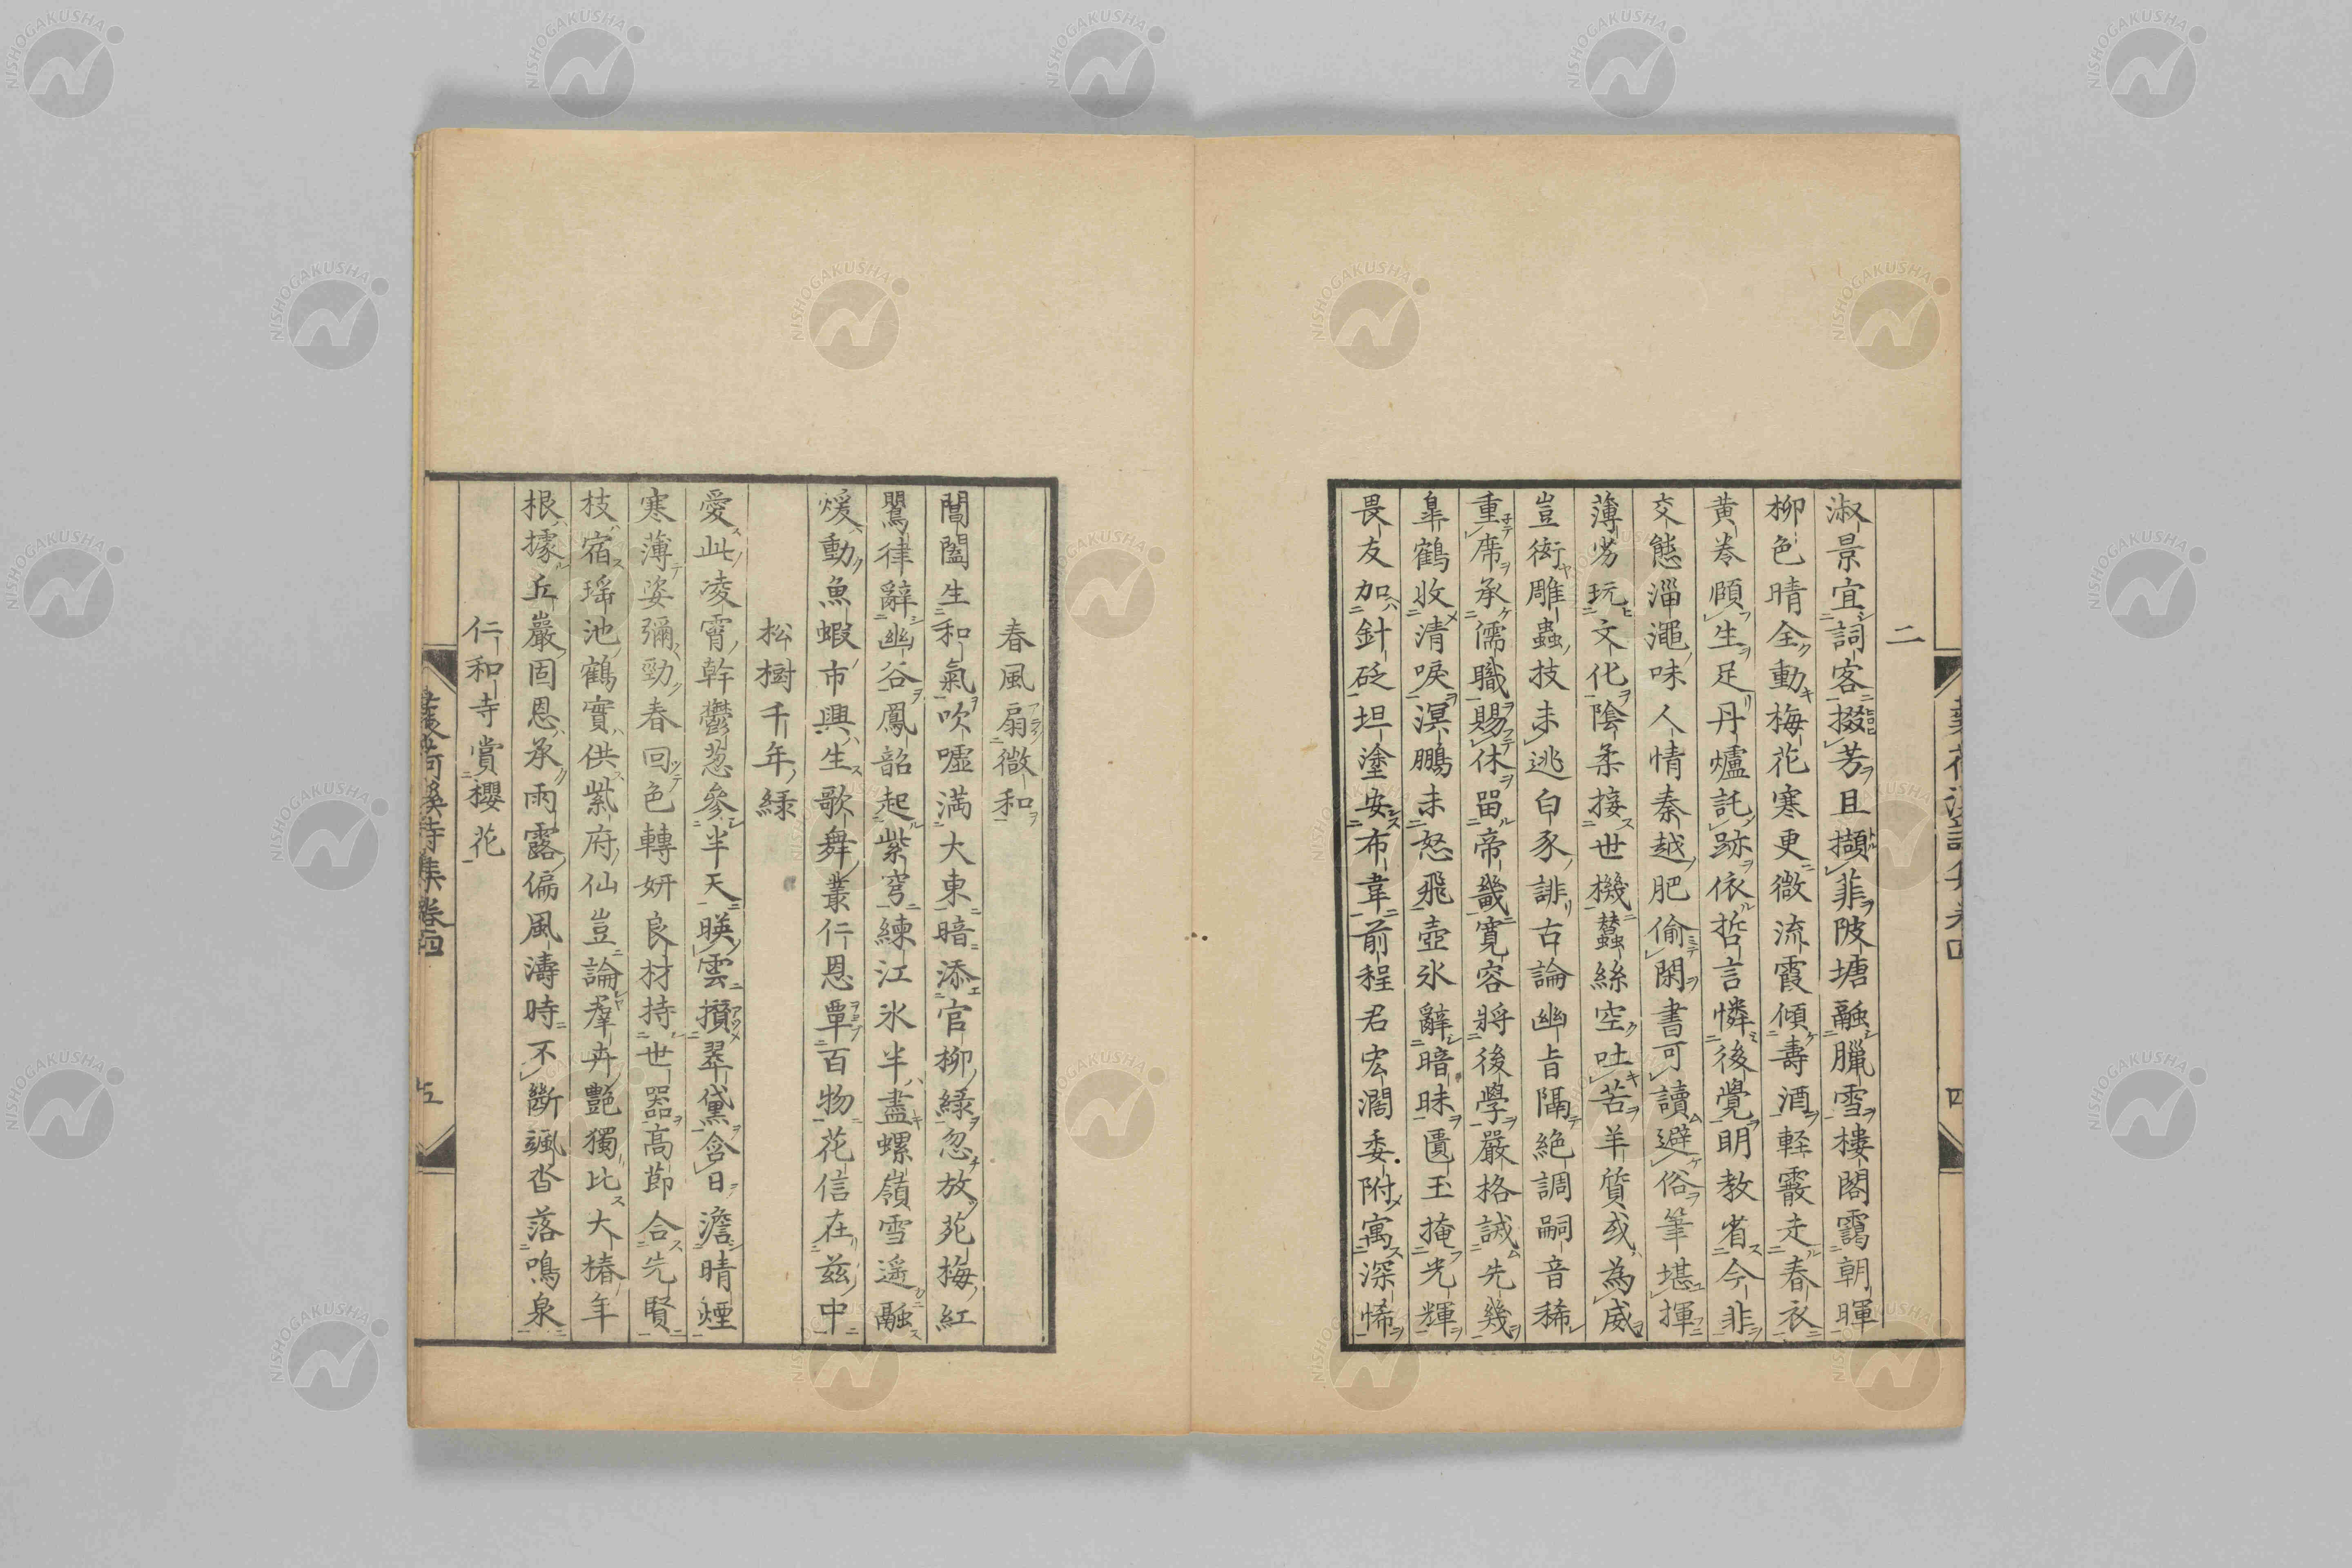 二
淑景宜詞客掇芳且擷菲陂塘融臘雪樓閣靄朝暉
柳色晴全動梅花寒更微流霞傾壽酒軽霰走春衣
黄巻頤生足丹爐託跡依哲言憐後覺明教省今非
交態淄澠味人情秦越肥偷閑書可讀避俗筆堪揮
薄劣玩文化陰柔接世機蠶絲空吐苦羊質或為威
豈衒雕蟲技未逃白豕誹古論幽旨隔絶調嗣音稀
重席承儒職賜休留帝畿寛容将後學嚴格誠先幾
皐鶴收清唳溟鵬未怒飛壺氷辭暗昧匱玉掩光輝
畏友加針砭坦塗安布韋前程君宏濶委附寓深悕
春風扇微和
閶闔生和氣吹噓満大東暗添官柳緑忽放苑梅紅
鸎律辭幽谷鳳韶起紫穹練江氷半盡螺嶺雪遥融
煖動魚蝦市興生歌舞叢仁恩覃百物花信在茲中
松樹千年緑
愛此凌霄幹鬱葱參半天暎雲攅翠黛含日澹晴煙
寒薄姿彌勁春回色轉妍良材持世器高節合先賢
枝宿瑶池鶴實供紫府仙豈論羣卉艶獨比大椿年
根據丘巖固恩承雨露偏風濤時不斷颯沓落鳴泉
仁和寺賞櫻花